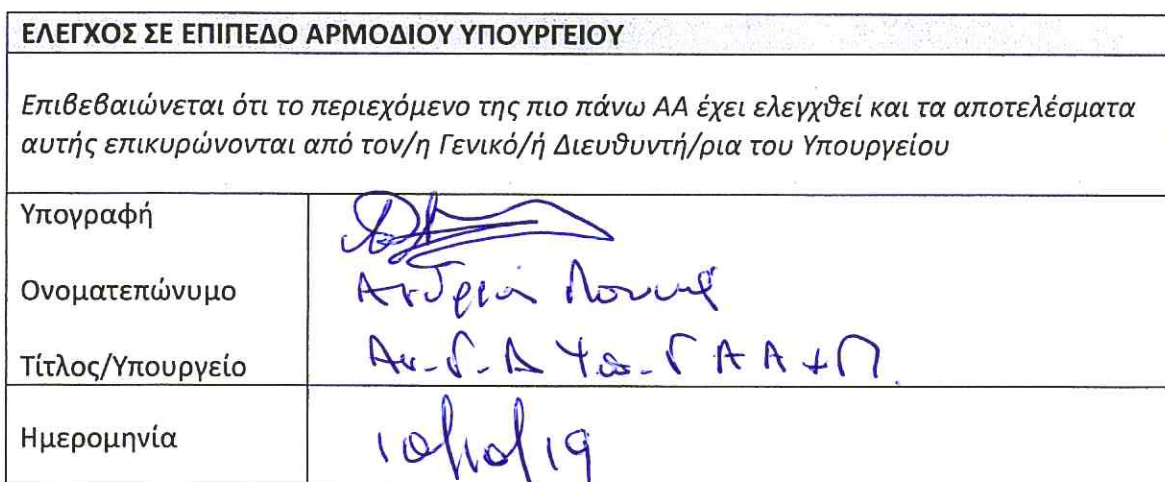 ΕΛΕΓΧΟΣ ΣΕ ΕΠΙΠΕΔΟ ΑΡΜΟΔΙΟΥ ΥΠΟΥΡΓΕΙΟΥ
Επιβεβαιώνεται ότι το περιεχόμενο της πιο πάνω ΑΑ έχει ελεγχθεί και τα αποτελέσματα
αυτής επικυρώνονται από τον/η Γενικό/ή Διευθυντή/ρια του Υπουργείου
Υπογραφή
Ονοματεπώνυμο
Τίτλος/Υπουργείο Αν. Γ. Δ Υπ. Γ Α Α + Π.
Ημερομηνία 10/10/19